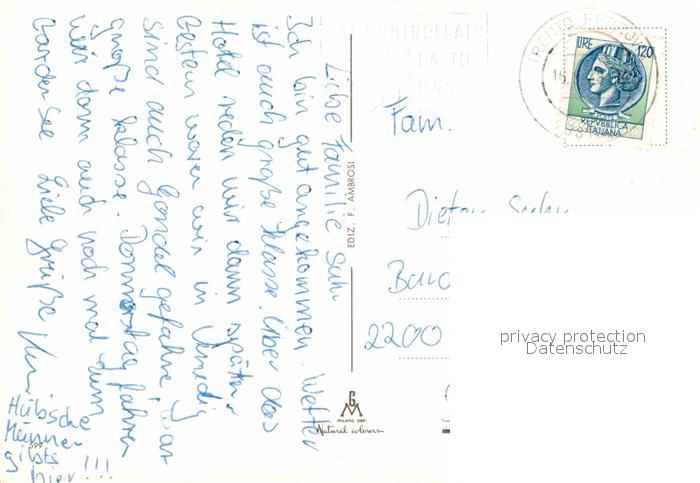 Liebe Familie Suhr
Ich bin gut angekommen. Wetter
ist auch große Klasse. Über das
Hotel reden wir dann später.
Gestern waren wir in Venedig
sind auch Gondel gefahren war
große Klasse. Donnerstag fahren
wir dann auch noch mal zum
Gardersee Liebe Grüße
Hübsche
Männer
gibts
hier!!!
599
EDIZ. F. AMBROSI
GM
MILANO DEP.
Natural colours
CONTROLLATO
LA TU
LIRE 120
REPVBBLICA
ITALIANA
Fam.
2200
privacy protection
Datenschutz